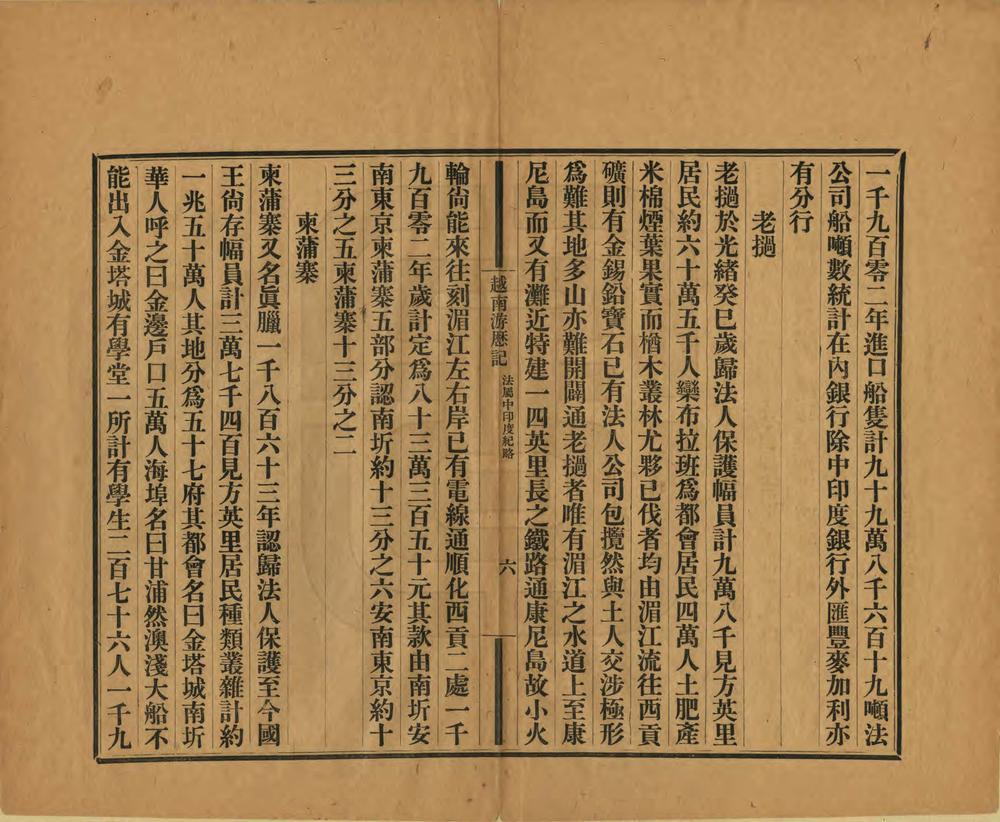 一千九百零二年進口船隻計九十九萬八千六百十九噸法
公司船噸數統計在內銀行除中印度銀行外匯豐麥加利亦
有分行
老撾
老撾於光緒癸巳歲歸法人保護幅員計九萬八千見方英里
居民約六十萬五千人欒布拉班爲都會居民四萬人土肥產
米棉煙葉果實而楢木叢林尤夥已伐者均由湄江流往西貢
礦則有金錫鉛寶石已有法人公司包攬然與土人交涉極形
爲難其地多山亦難開闢通老撾者唯有湄江之水道上至康
尼島而又有灘近特建一四英里長之鐵路通康尼島故小火
越南游歷記
法屬中印度紀略
六
輪尙能來往刻湄江左右岸已有電線通順化西貢二處一千
九百零二年歲計定爲八十三萬三百五十元其款由南圻安
南東京柬蒲寨五部分認南圻約十三分之六安南東京約十
三分之五柬蒲寨十三分之二
柬蒲寨
柬蒲寨又名眞臘一千八百六十三年認歸法人保護至今國
王尙存幅員計三萬七千四百見方英里居民種類叢雜計約
一兆五十萬人其地分爲五十七府其都會名曰金塔城南圻
華人呼之曰金邊戶口五萬人海埠名曰甘浦然澳淺大船不
能出入金塔城有學堂一所計有學生二百七十六人一千九